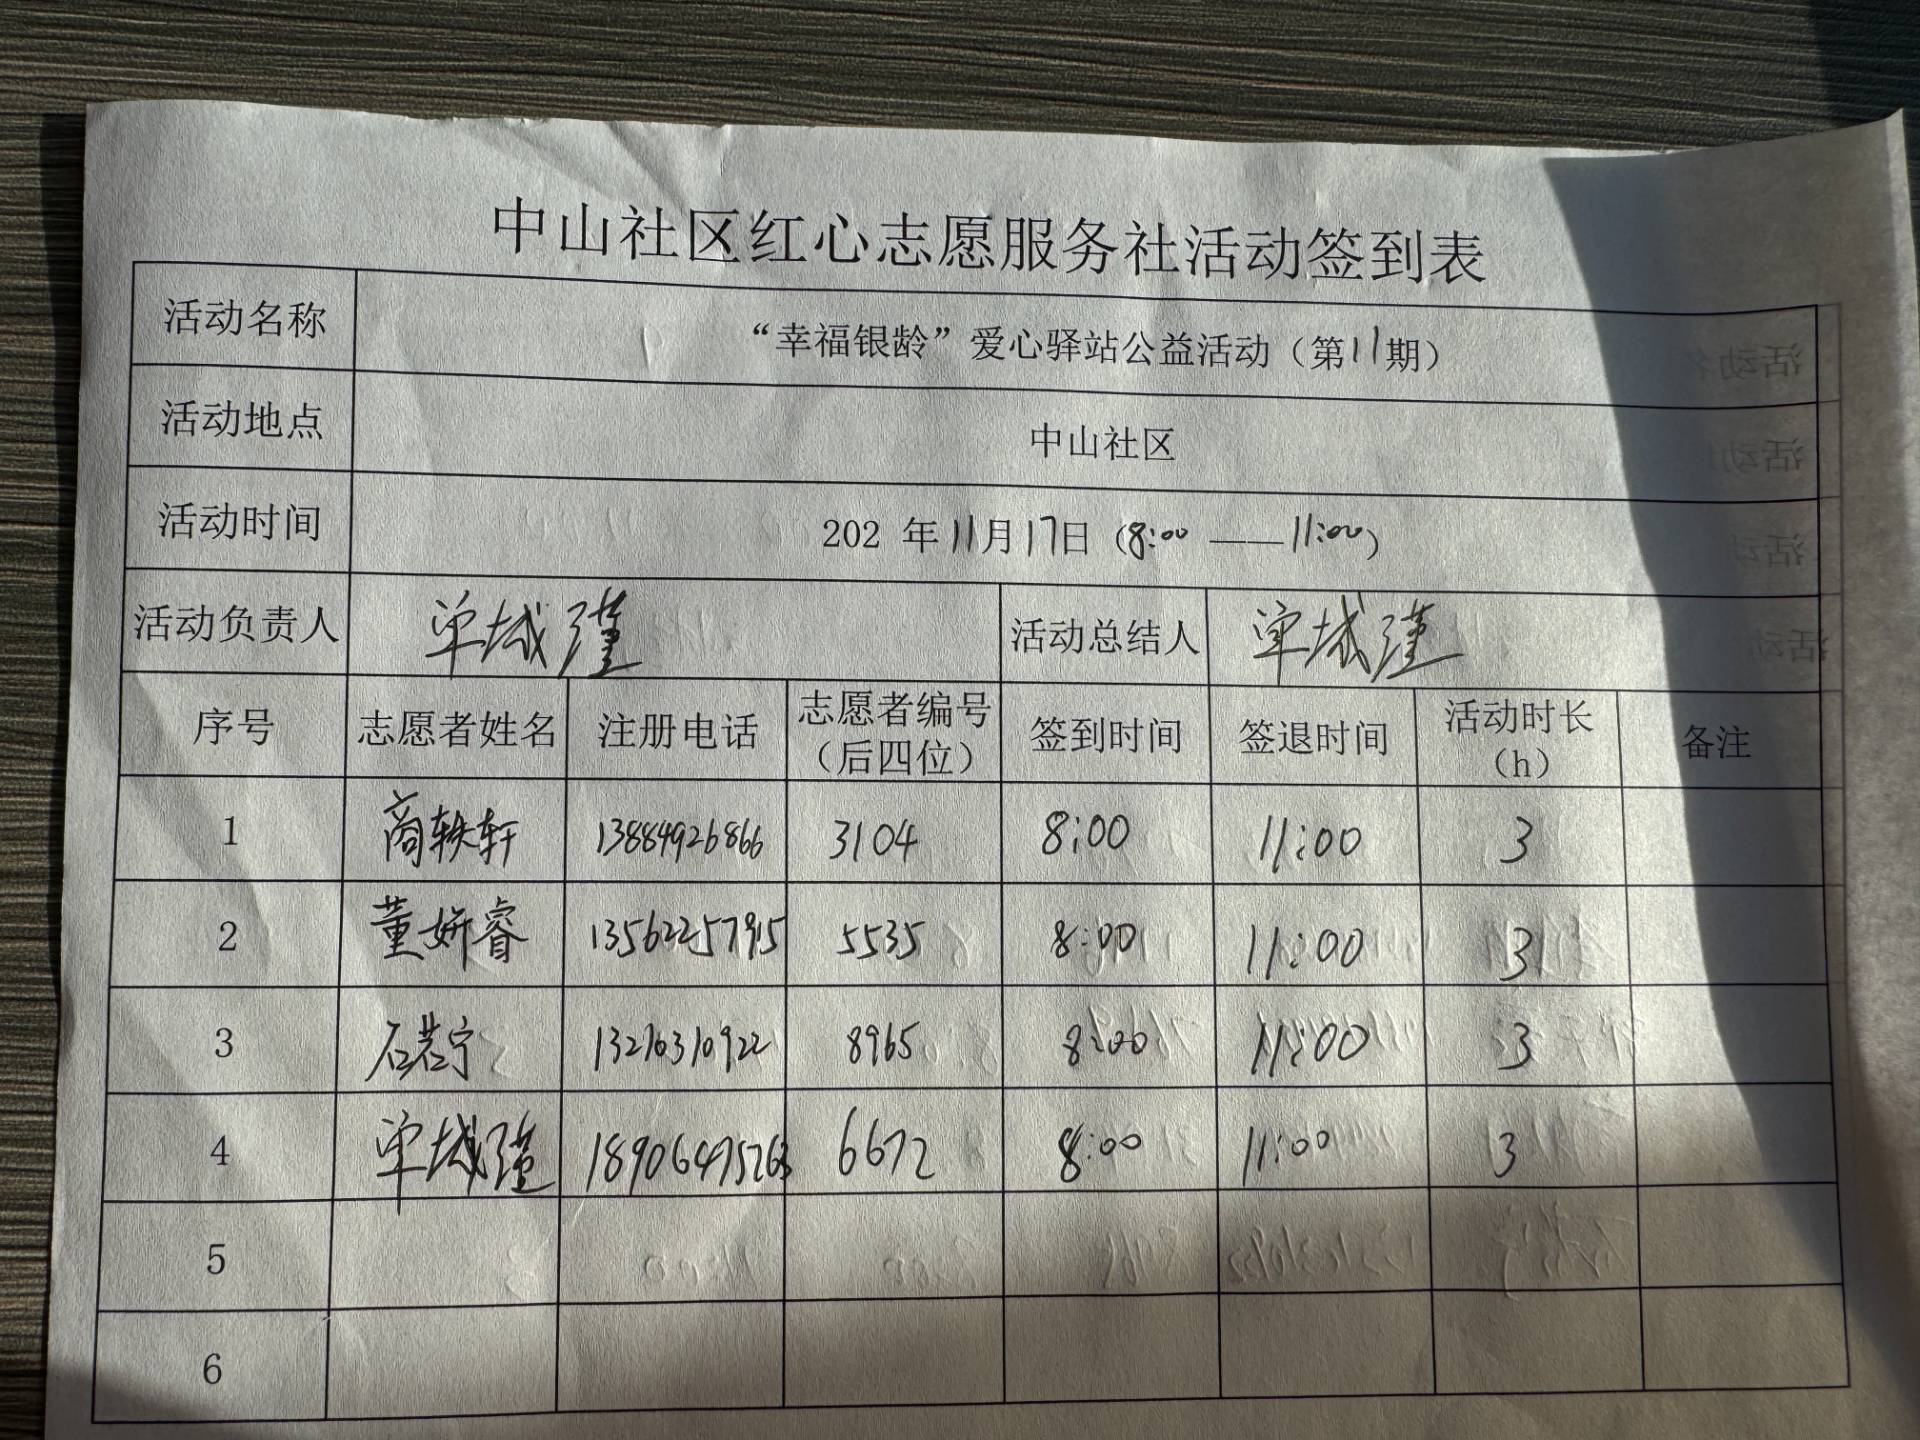 中山社区红心志愿服务社活动签到表
活动名称 “幸福银龄”爱心驿站公益活动（第11期）
活动地点 中山社区
活动时间 202 年11月17日（8:00 ——11:00）
活动负责人 单城瑾 活动总结人 单城瑾
序号 志愿者姓名 注册电话 志愿者编号（后四位） 签到时间 签退时间 活动时长（h） 备注
1 商轶轩 13884926866 3104 8:00 11:00 3
2 董妍睿 13562257915 5535 8:00 11:00 3
3 石若宁 13210310922 8965 8:00 11:00 3
4 单城瑾 18906475763 6672 8:00 11:00 3
5
6